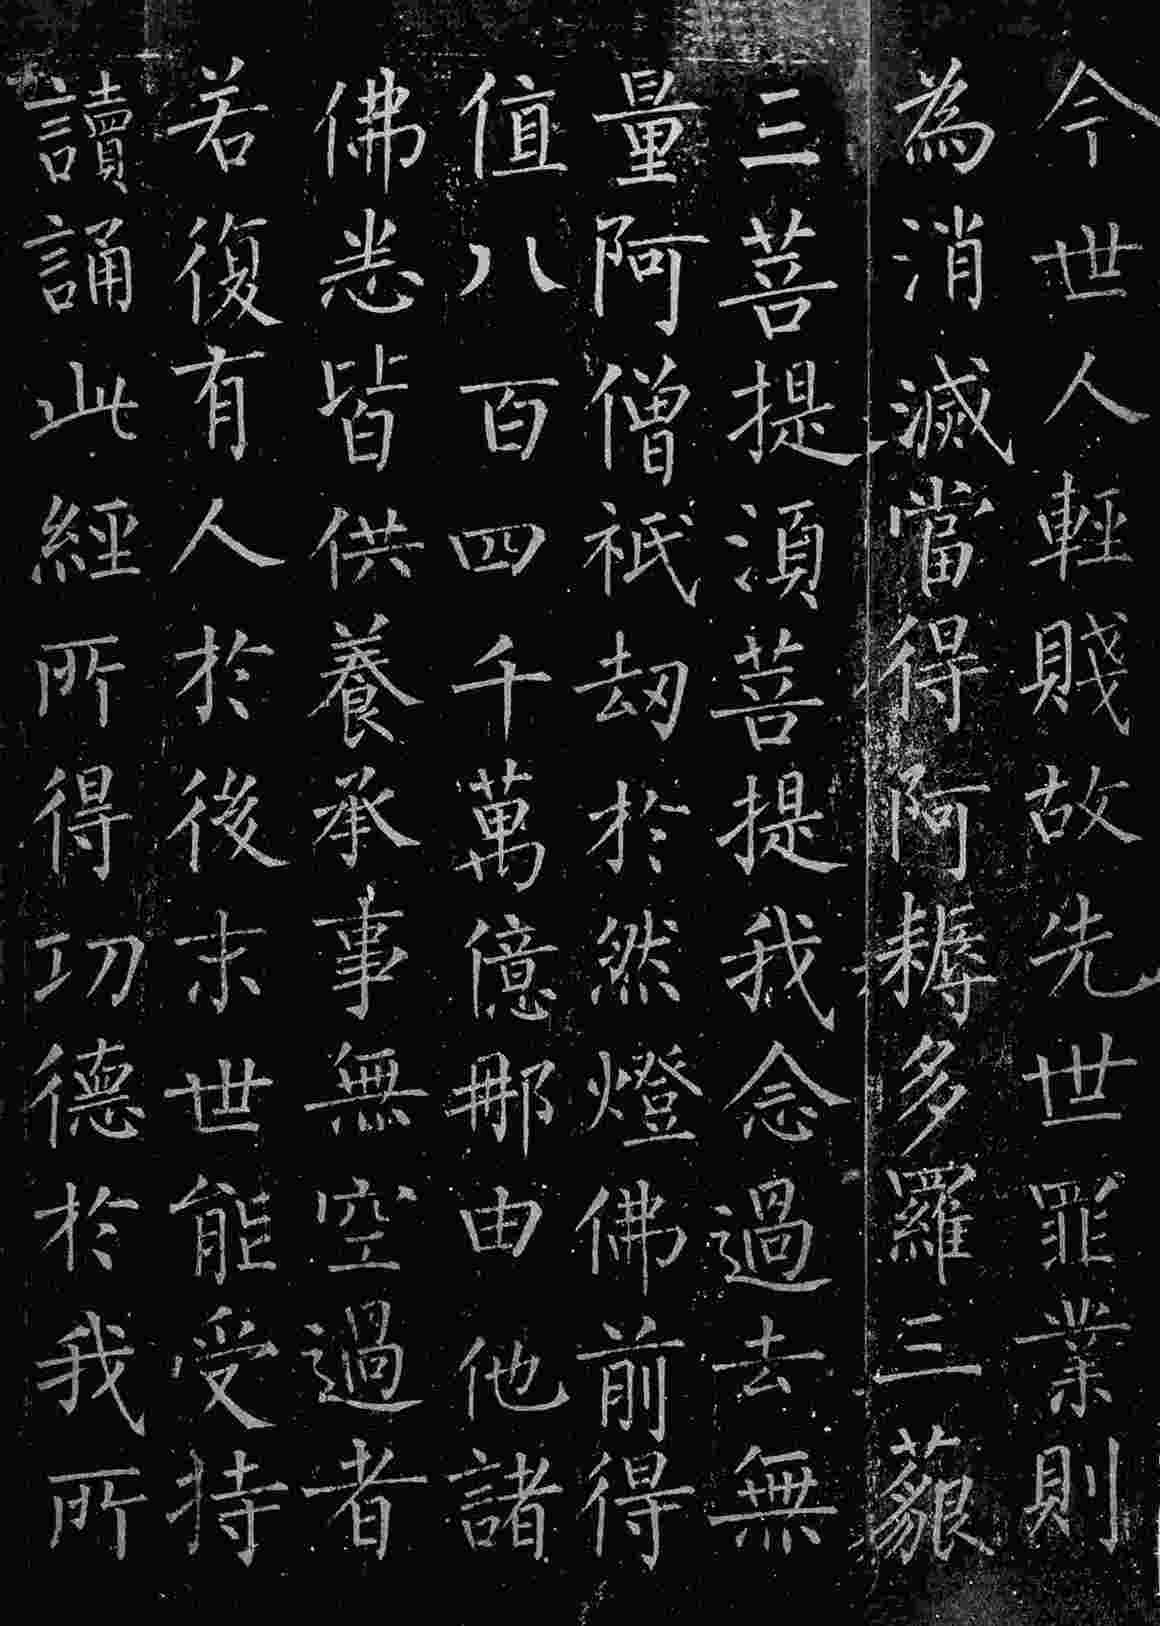 今世人輕賤故先世罪業則
為消滅當得阿耨多羅三藐
三菩提湏菩提我念過去無
量阿僧祇劫於然燈佛前得
值八百四千萬億那由他諸
佛悉皆供養承事無空過者
若復有人於後末世能受持
讀誦此經所得功德於我所